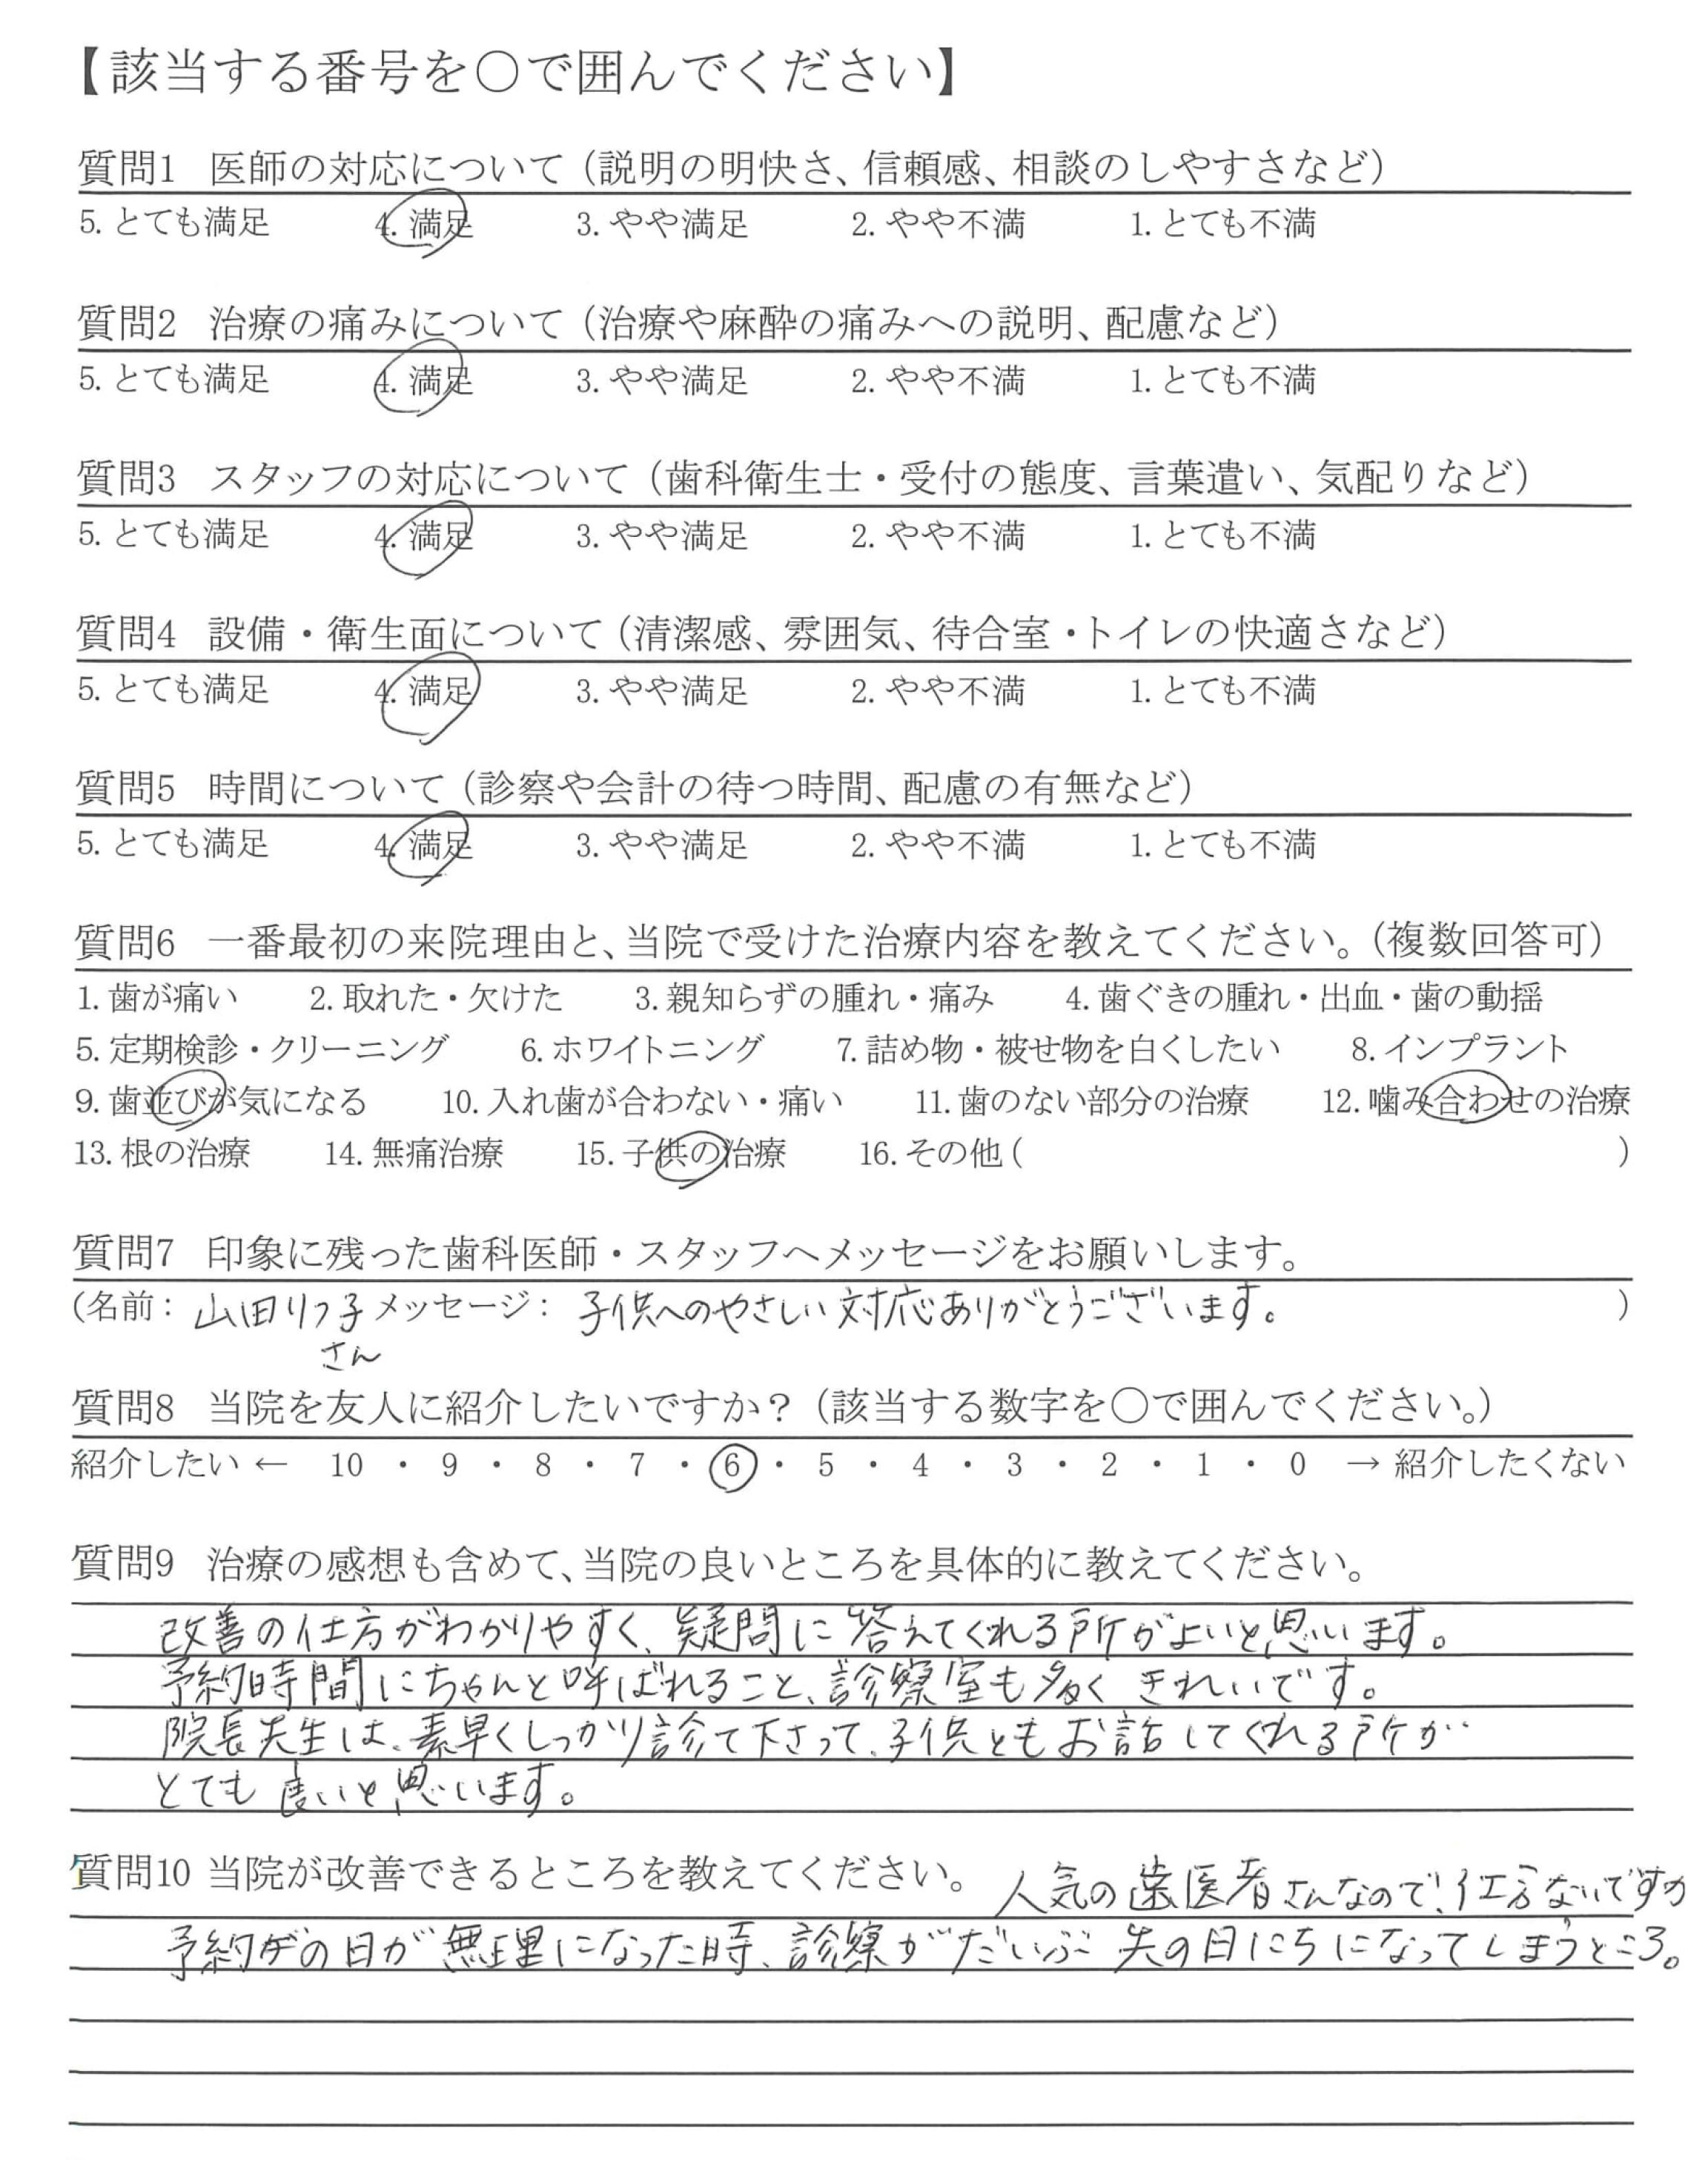 【該当する番号を〇で囲んでください】
質問1 医師の対応について（説明の明快さ、信頼感、相談のしやすさなど）
5. とても満足 4. 満足 3. やや満足 2. やや不満 1. とても不満
質問2 治療の痛みについて（治療や麻酔の痛みへの説明、配慮など）
5. とても満足 4. 満足 3. やや満足 2. やや不満 1. とても不満
質問3 スタッフの対応について（歯科衛生士・受付の態度、言葉遣い、気配りなど）
5. とても満足 4. 満足 3. やや満足 2. やや不満 1. とても不満
質問4 設備・衛生面について（清潔感、雰囲気、待合室・トイレの快適さなど）
5. とても満足 4. 満足 3. やや満足 2. やや不満 1. とても不満
質問5 時間について（診察や会計の待つ時間、配慮の有無など）
5. とても満足 4. 満足 3. やや満足 2. やや不満 1. とても不満
質問6 一番最初の来院理由と、当院で受けた治療内容を教えてください。（複数回答可）
1. 歯が痛い 2. 取れた・欠けた 3. 親知らずの腫れ・痛み 4. 歯ぐきの腫れ・出血・歯の動揺
5. 定期検診・クリーニング 6. ホワイトニング 7. 詰め物・被せ物を白くしたい 8. インプラント
9. 歯並びが気になる 10. 入れ歯が合わない・痛い 11. 歯のない部分の治療 12. 噛み合わせの治療
13. 根の治療 14. 無痛治療 15. 子供の治療 16. その他（ ）
質問7 印象に残った歯科医師・スタッフへメッセージをお願いします。
（名前： 山田りつ子 メッセージ： 子供へのやさしい対応ありがとうございます。 ）
さん
質問8 当院を友人に紹介したいですか？（該当する数字を〇で囲んでください。）
紹介したい ← 10 ・ 9 ・ 8 ・ 7 ・ 6 ・ 5 ・ 4 ・ 3 ・ 2 ・ 1 ・ 0 → 紹介したくない
質問9 治療の感想も含めて、当院の良いところを具体的に教えてください。
改善の仕方がわかりやすく、疑問に答えてくれる所がよいと思います。
予約時間にちゃんと呼ばれること、診察室も多く きれいです。
院長先生は、素早くしっかり診て下さって、子供ともお話してくれる所が
とても良いと思います。
質問10 当院が改善できるところを教えてください。 人気の歯医者さんなので、仕方ないですが
予約の日が無理になった時、診察がだいぶ先の日にちになってしまうところ。